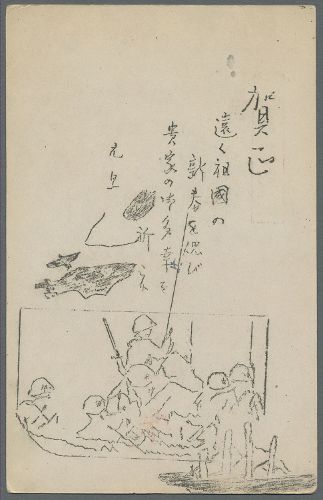 賀正
遠く祖國の
新春を偲び
貴家の御多幸を
祈る
元旦